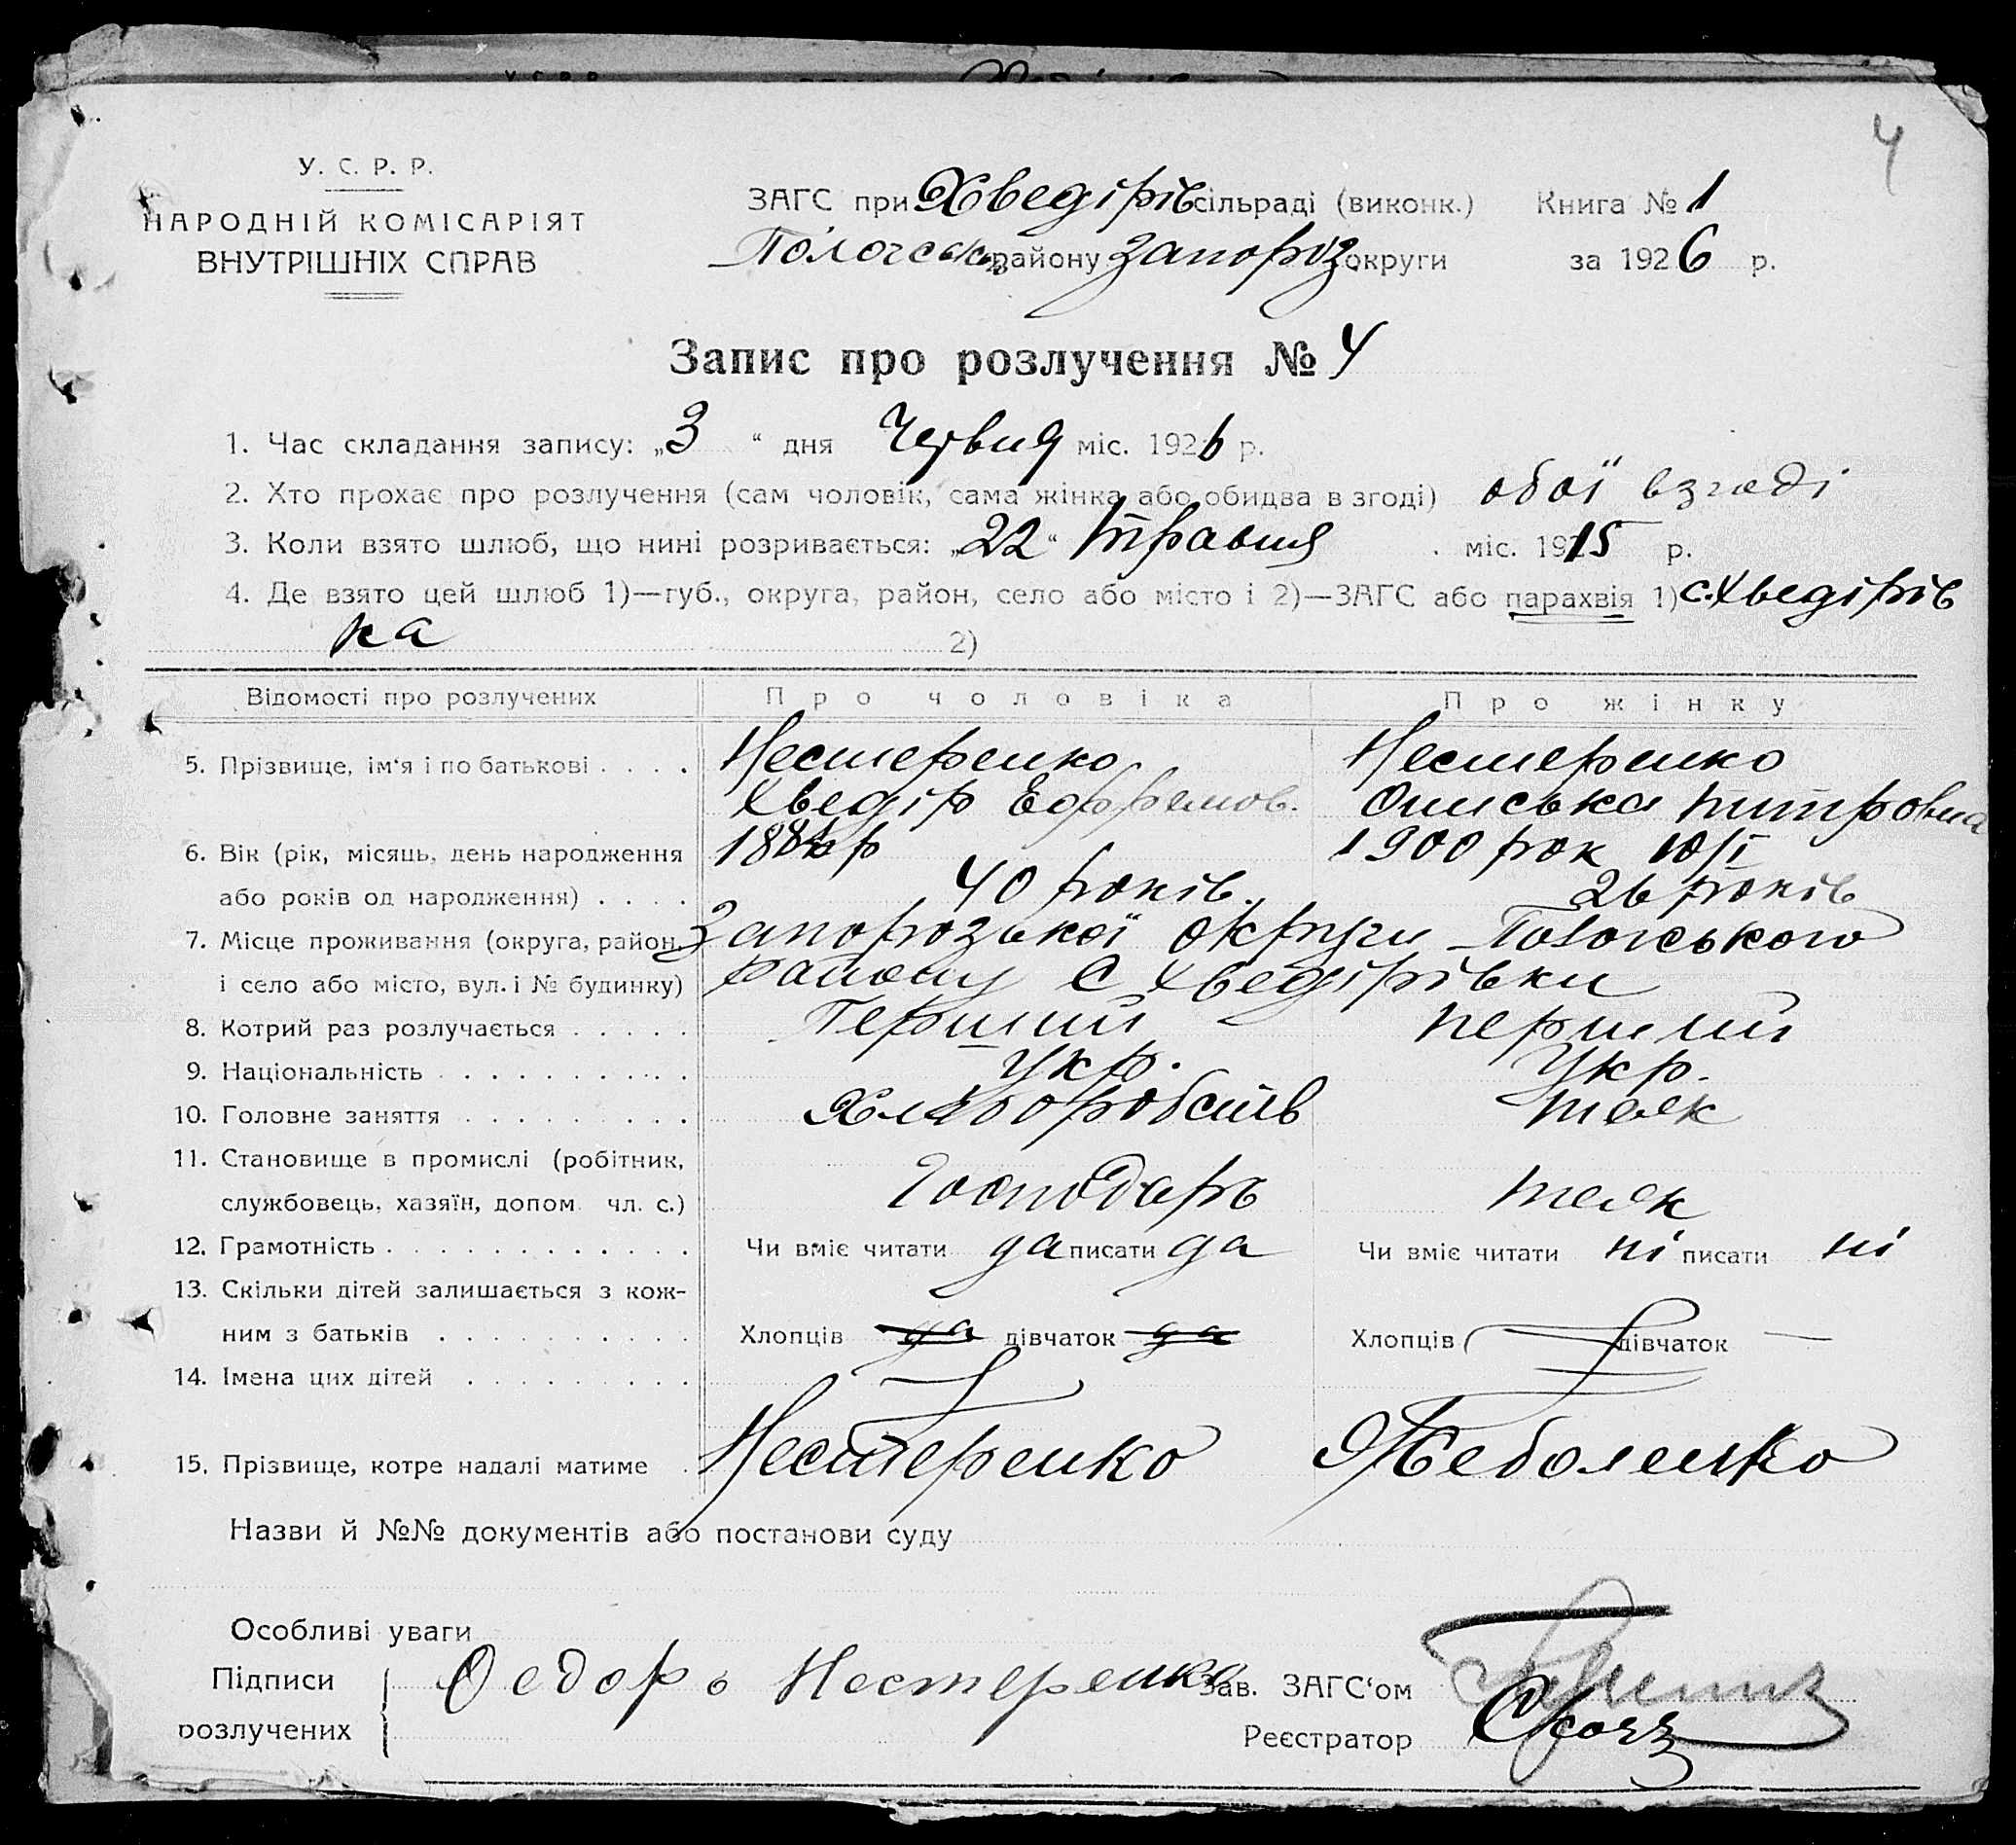 4
У. С. Р. Р.
НАРОДНІЙ КОМІСАРІЯТ
ВНУТРІШНІХ СПРАВ
ЗАГС при Хведірів сільраді (виконк.) Книга № 1
Пологськ району Запоріз. округи за 1926 р.
Запис про розлучення № 4
1. Час складання запису: „3“ дня Червня міс. 1926 р.
2. Хто прохає про розлучення (сам чоловік, сама жінка або обидва в згоді) обої взгоді
3. Коли взято шлюб, що нині розривається: „22“ Травня міс. 1915 р.
4. Де взято цей шлюб 1)—губ., округа, район, село або місто і 2)—ЗАГС або парахвія 1) с. Хведірів
ка 2)
Відомості про розлучених Про чоловіка Про жінку
5. Прізвище, ім‘я і по батькові . . . . Нестеренко Нестеренко
Хведір Ефремов. Ониська Питровна
6. Вік (рік, місяць, день народження р 1900 рок 10/I
або років од народження) . . . . 40 років. 26 років
7. Місце проживання (округа, район, Запорозької округи Пологського
і село або місто, вул. і № будинку) району с Хведірівки
8. Котрий раз розлучається . . . . . Перший перший
9. Національність . . . . . . . . . . Укр. Укр.
10. Головне заняття . . . . . . . . . Хліборобств теж
11. Становище в промислі (робітник,
службовець, хазяїн, допом. чл. с.) Господарь теж
12. Грамотність . . . . . . . . . . . . Чи вміє читати да писати да Чи вміє читати ні писати ні
13. Скільки дітей залишається з кож-
ним з батьків . . . . . . . . . . Хлопців да дівчаток да Хлопців дівчаток —
14. Імена цих дітей . . . . . . . . .
15. Прізвище, котре надалі матиме . Нестеренко Жеболенко
Назви й №№ документів або постанови суду
Особливі уваги
Підписи Федоръ Нестеренко Зав. ЗАГС‘ом
розлучених Реєстратор